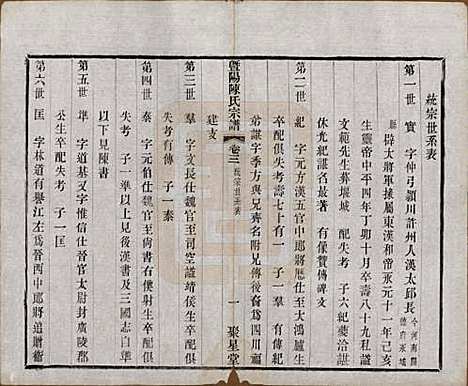 統宗世系表
第一世 寔 字仲弓潁川許州人漢太邱長 今河南開德府永城
縣 辟大將軍掾屬東漢和帝永元十一年己亥
生靈帝中平四年丁卯十月卒壽八十九私諡
文範先生葬堰城 配失考 子六紀夔洽諶
休光紀諶名最著 有像贊傳碑文
第二世 紀 字元方漢五官中郎將歷任大鴻臚生
卒配俱失考壽七十有一 子一羣 有傳紀
弟諶字季方與兄齊名附見傳後裔為四川
建支
暨陽陳氏宗譜 卷三 統宗世系表 一 聚星堂
第三世 羣 字文長仕魏官至司空諡靖生卒配俱
失考有傳 子一泰
第四世 泰 字元伯仕魏官至尚書右僕射生卒配俱
失考 子一準以上見後漢書及三國志自準
以下見陳書
第五世 準 字道基又字惟信仕晉官太尉封廣陵郡
公生卒配失考 子一匡
第六世 匡 字林道有譽江左為晉西中郎將追贈衛